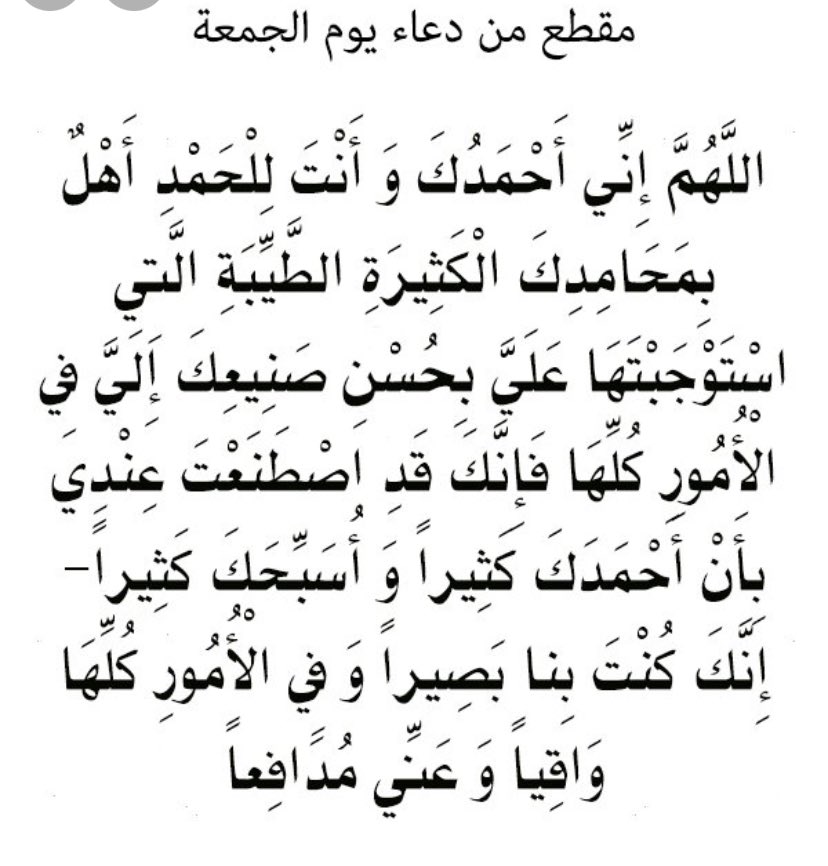 مقطع من دعاء يوم الجمعة
اللَّهُمَّ إِنِّي أَحْمَدُكَ وَ أَنْتَ لِلْحَمْدِ أَهْلٌ
بِمَحَامِدِكَ الْكَثِيرَةِ الطَّيِّبَةِ الَّتِي
اسْتَوْجَبْتَهَا عَلَيَّ بِحُسْنِ صَنِيعِكَ إِلَيَّ فِي
الْأُمُورِ كُلِّهَا فَإِنَّكَ قَدِ اصْطَنَعْتَ عِنْدِي
بِأَنْ أَحْمَدَكَ كَثِيراً وَ أُسَبِّحَكَ كَثِيراً–
إِنَّكَ كُنْتَ بِنا بَصِيراً وَ فِي الْأُمُورِ كُلِّهَا
وَاقِياً وَ عَنِّي مُدَافِعاً